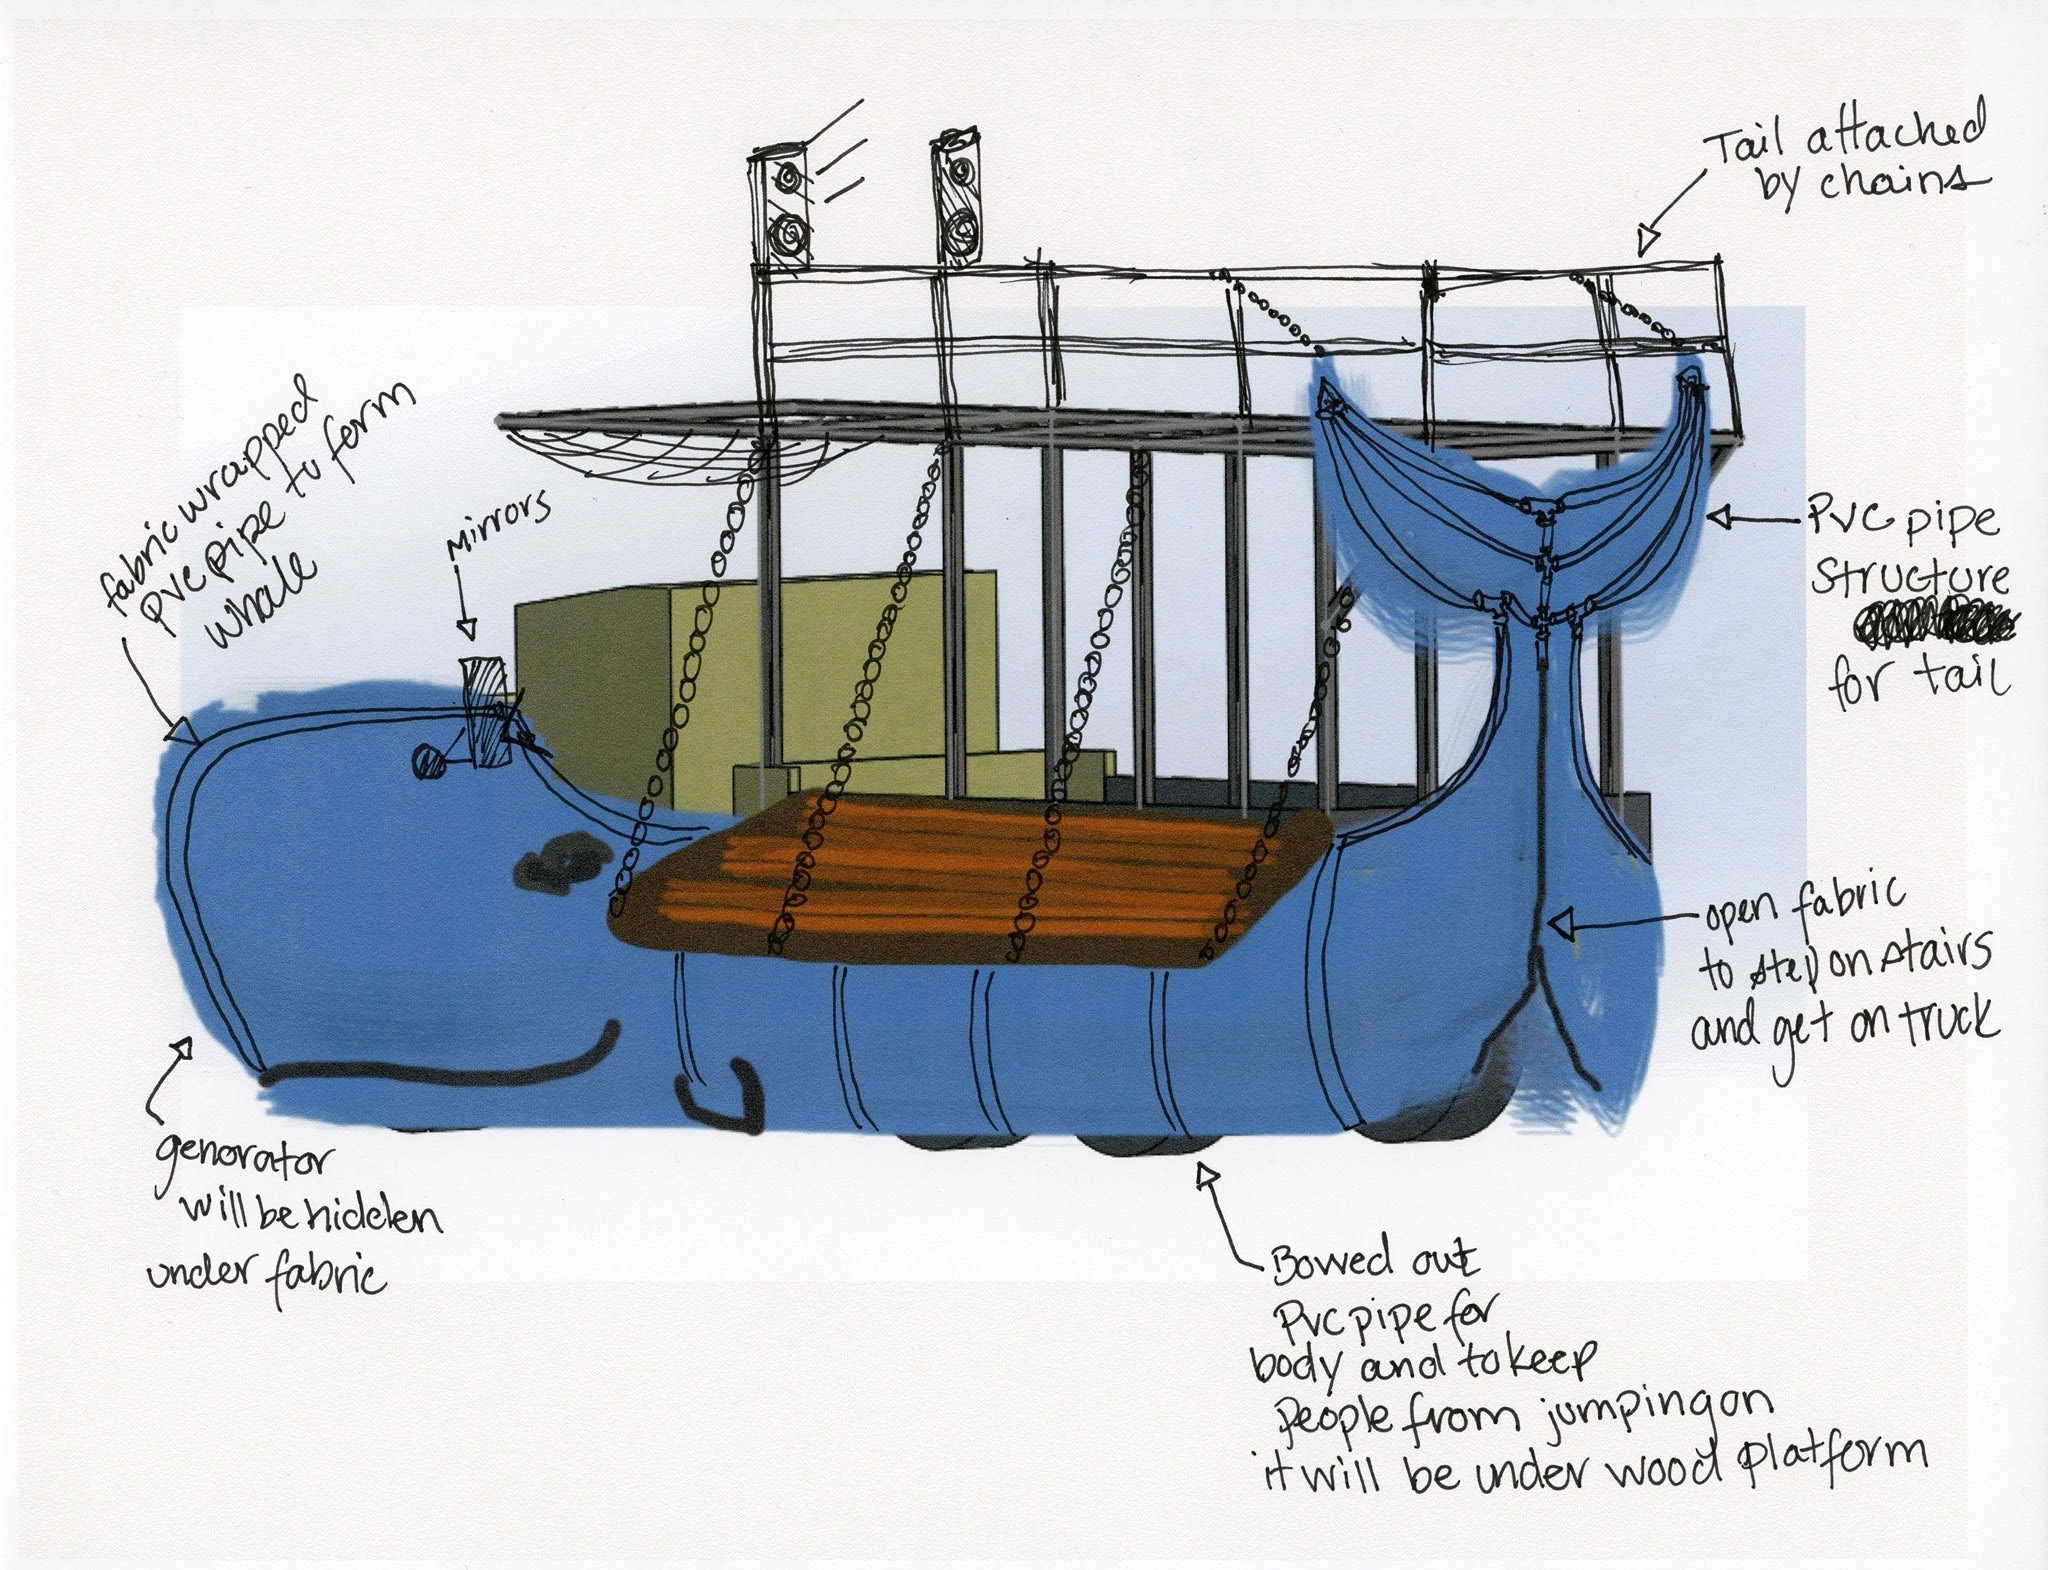 Tail attached
by chains
fabric wrapped
pvc pipe to form
whale
Mirrors
Pvc pipe
structure
for tail
open fabric
to step on stairs
and get on truck
generator
will be hidden
under fabric
Bowed out
Pvc pipe for
body and to keep
people from jumping on
it will be under wood platform